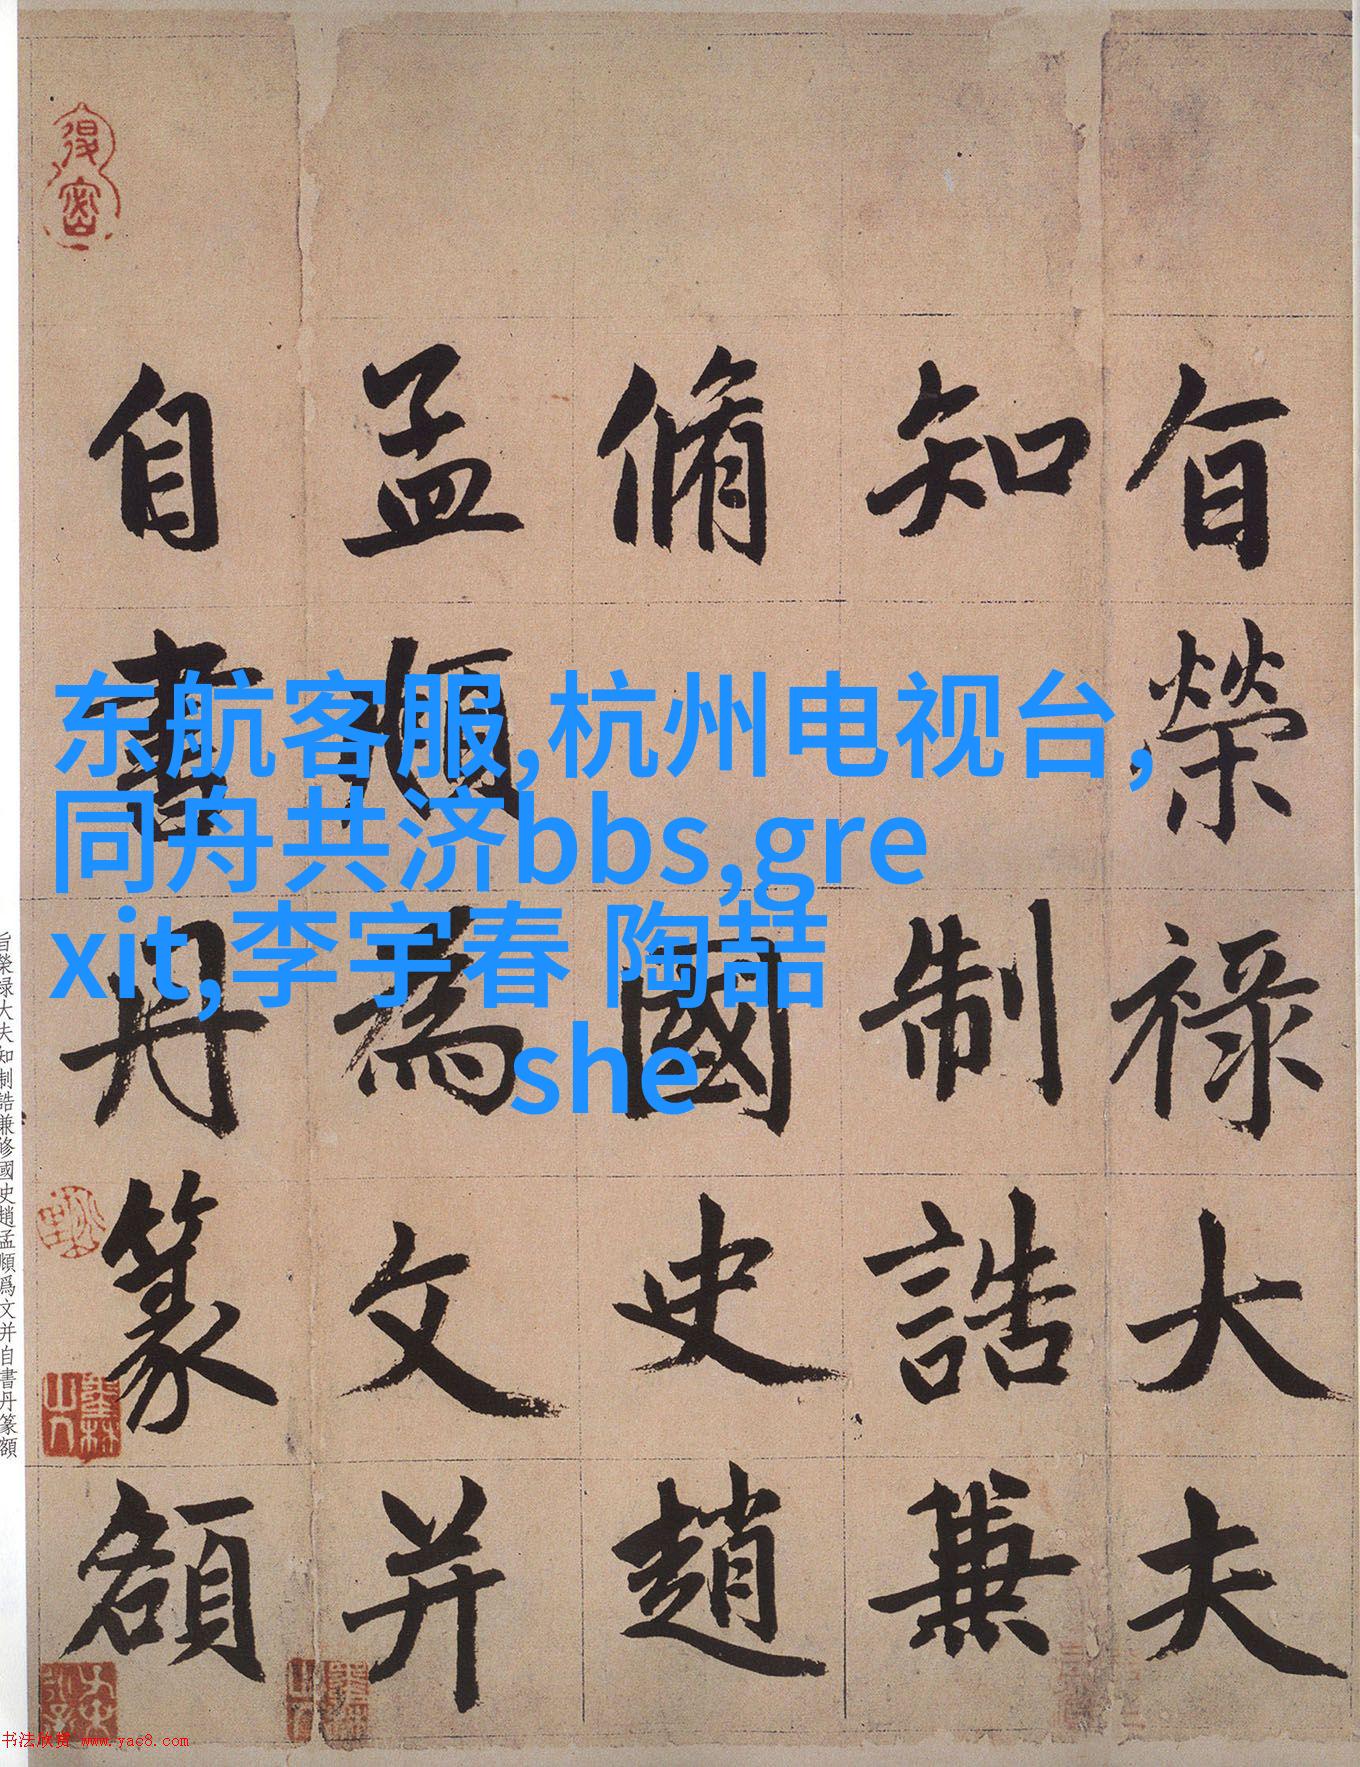 旨榮祿大夫
知制誥兼
脩國史趙
孟頫為文并
自書丹篆額
东航客服,杭州电视台,
同舟共济bbs,gre
xit,李宇春 陶喆
she
旨榮禄大夫知制誥兼修國史趙孟頫爲文并自書丹篆額
书法欣赏 www.yac8.com